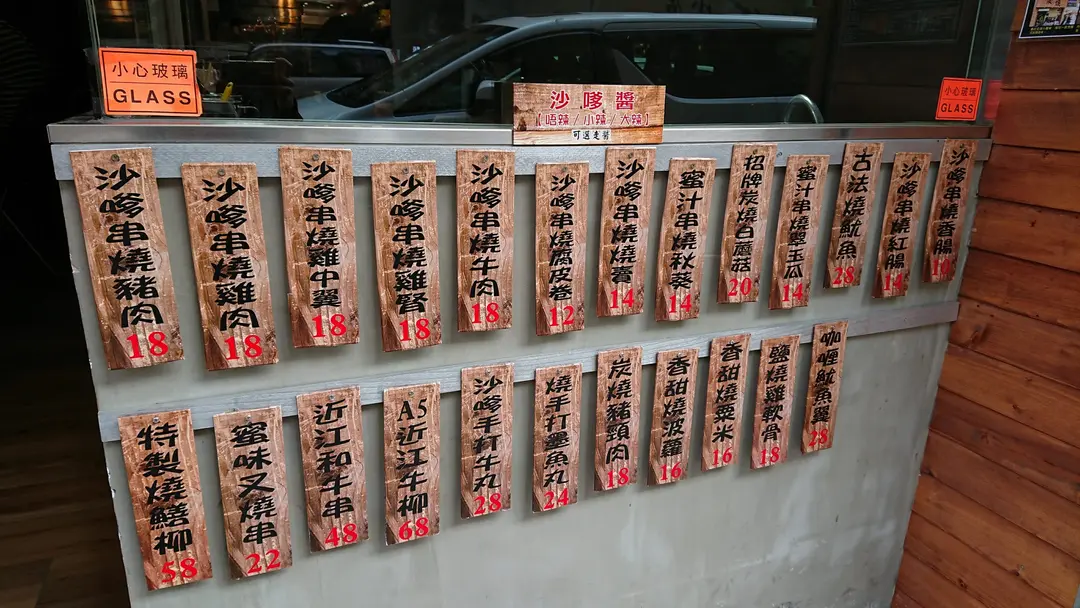 小心玻璃
GLASS
沙嗲醬
【唔辣/小辣/大辣】
可選走醬
小心玻璃
GLASS
沙嗲串燒豬肉
18
沙嗲串燒雞肉
18
沙嗲串燒雞中翼
18
沙嗲串燒雞腎
18
沙嗲串燒牛肉
18
沙嗲串燒腐皮卷
12
沙嗲串燒燒賣
14
蜜汁串燒秋葵
14
招牌炭燒白蘑菇
20
蜜汁串燒翠玉瓜
14
古法燒魷魚
28
沙嗲串燒紅腸
14
沙嗲串燒香腸
16
特製燒鱔柳
58
蜜味叉燒串
22
近江和牛串
48
A5近江牛柳
68
沙嗲手打牛丸
28
燒手打墨魚丸
24
炭燒豬頸肉
18
香甜燒波蘿
16
香甜燒粟米
16
鹽燒雞軟骨
18
咖喱魷魚翼
28